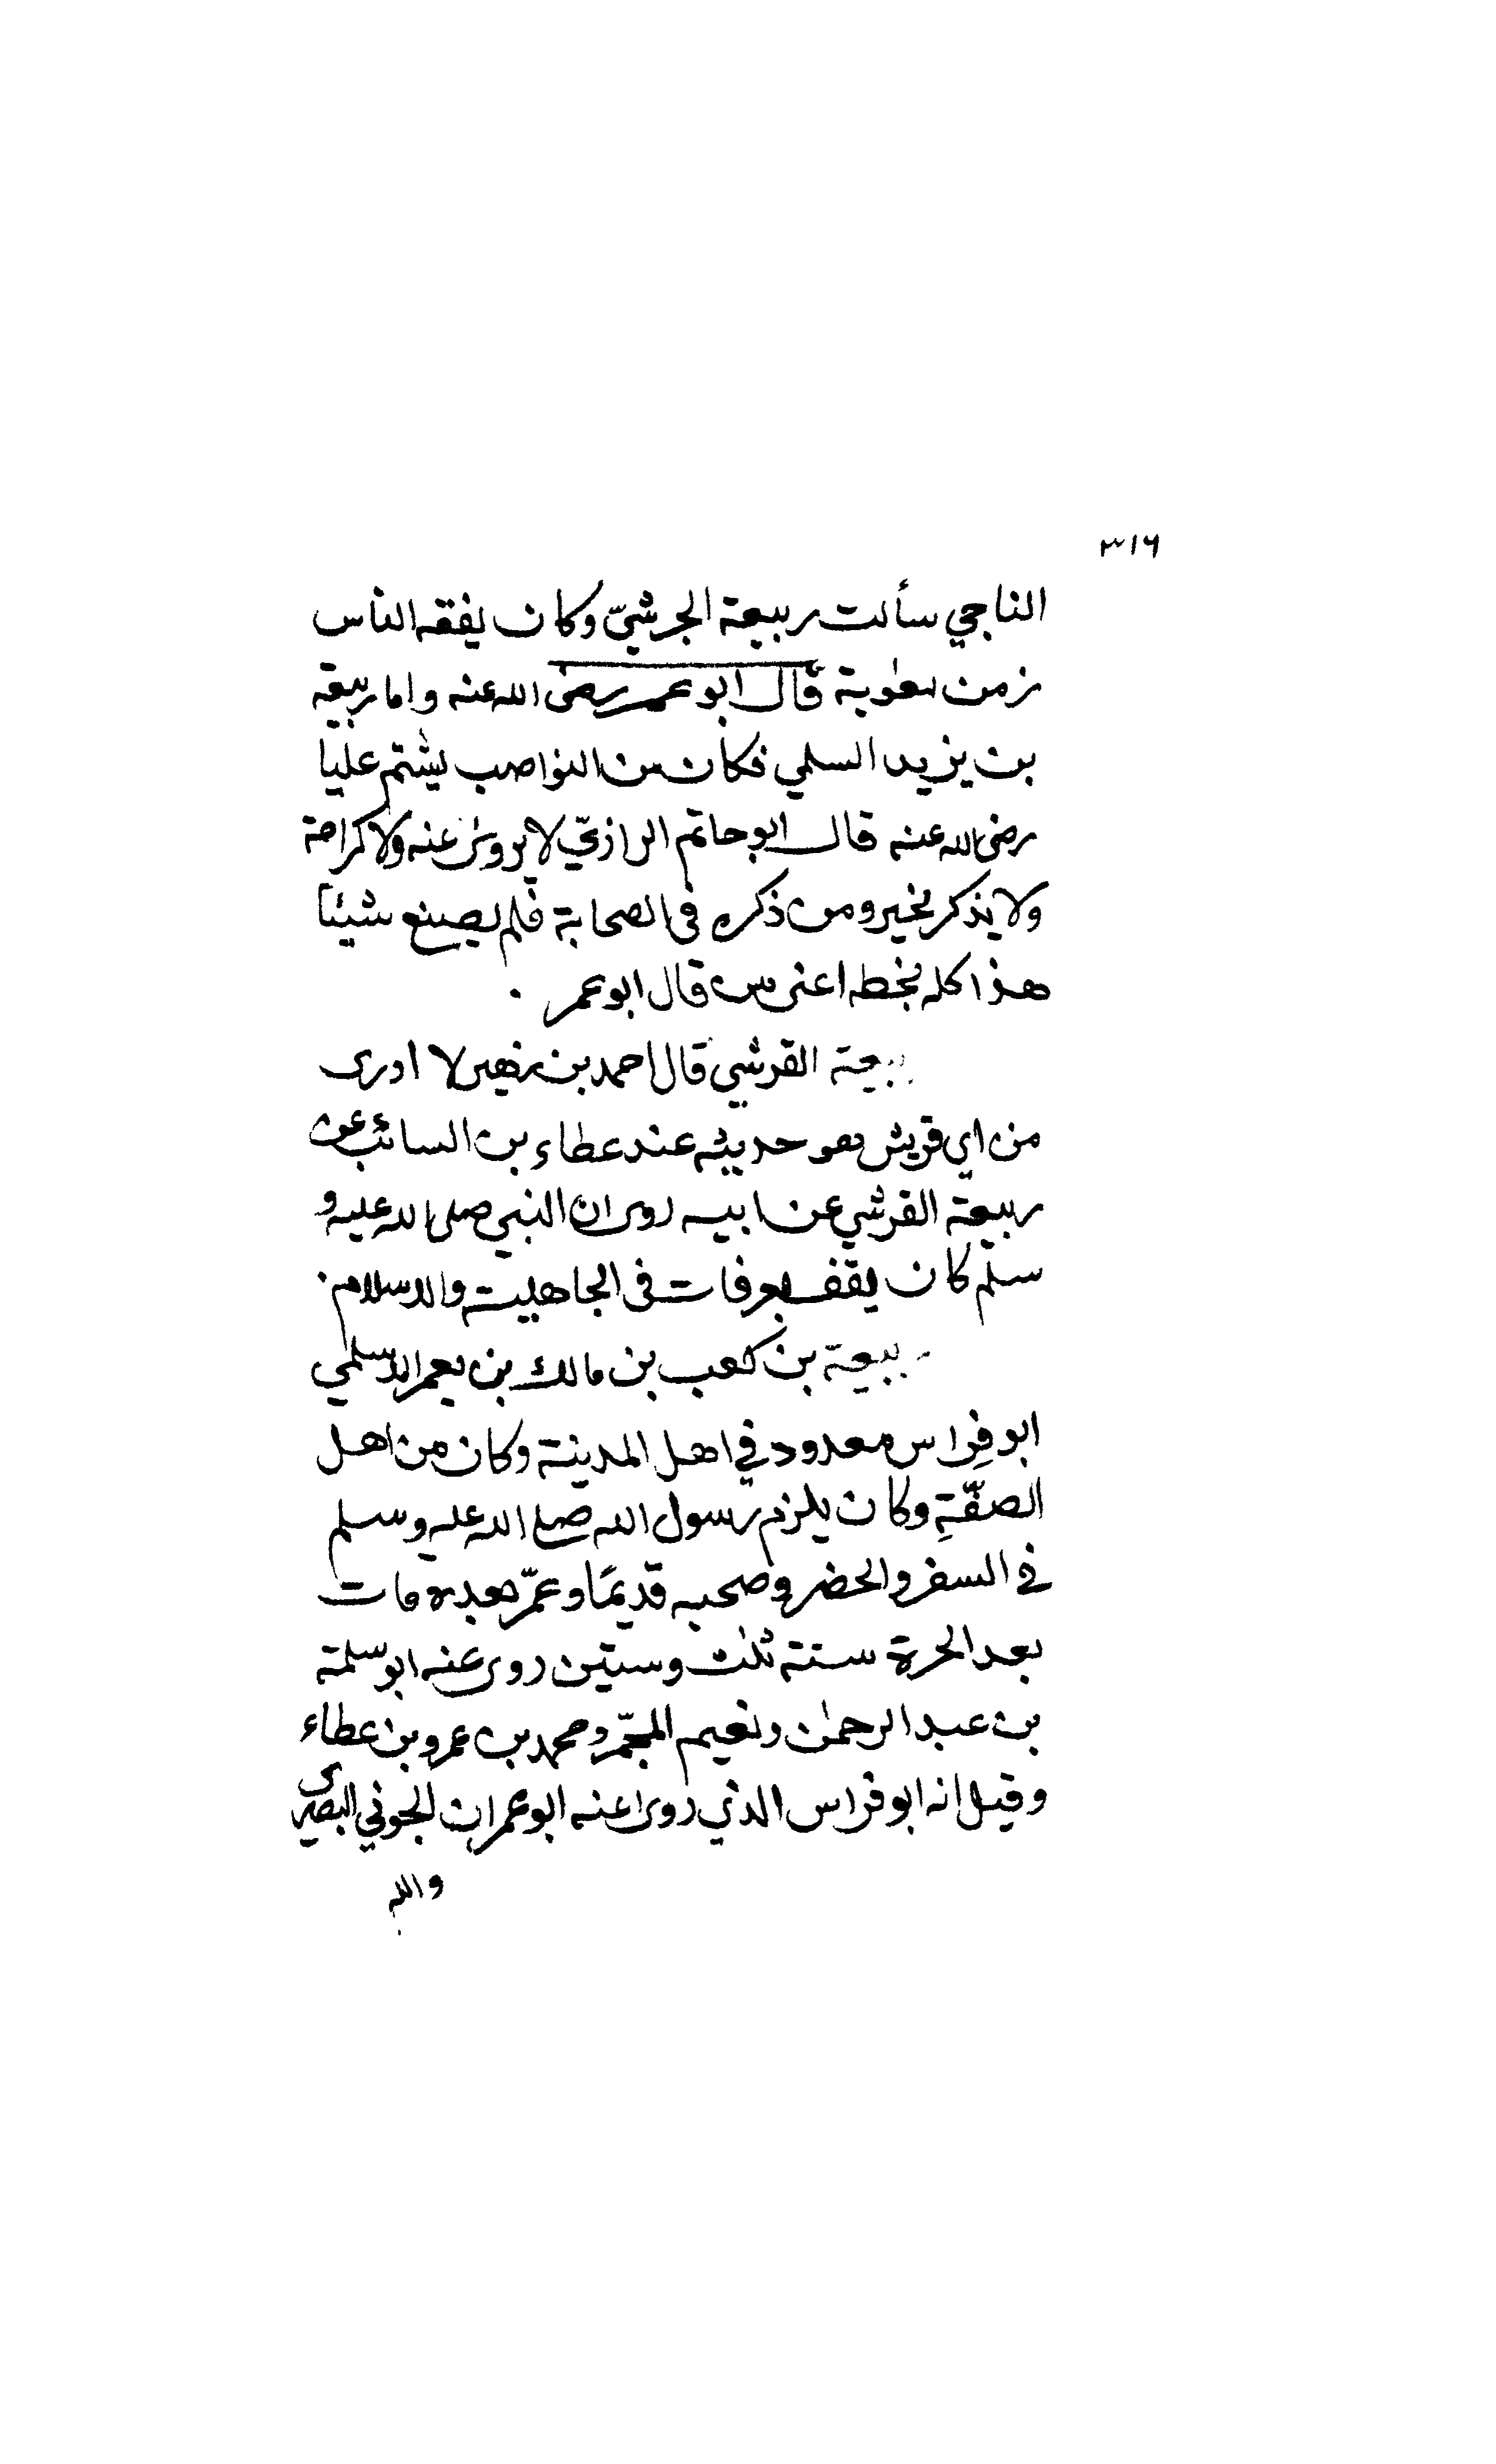 ٣١٦
الناجي سألت ربيعة الجرشيّ وكان يفقه الناس
زمن معٰوية قال ابو عمر رضى الله عنه واما ربيعة
بن يزيد السلمي فكان من النواصب يشتم عليا
رضى الله عنه قال ابو حاتم الرازيّ لا يروىٰ عنه ولا كرامة
ولا يذكر بخير ومن ذكره فى الصحابة فلم يصنع شيئاً
هذا كله بخطه اعنى من قال ابو عمر .
ربيعة القرشي قال احمد بن زهير لا ادرى
من اي قريش هو حديثه عند عطاء بن السائب عن
ربيعة القرشي عن ابيه روى ان النبي صلى الله عليه و
سلم كان يقف بعرفات فى الجاهلية والاسلام .
ربيعة بن كعب بن مالك بن يعمر الاسلمي
ابو فِراس معدود في اهل المدينة وكان من اهل
الصفّةِ وكان يلزم رسول الله صلى الله عليه وسلم
في السفر والحضر وصحبه قديمًا وعمّر بعده مات
بعد الحرة سنة ثلٰث وستين روى عنه ابو سلمة
بن عبد الرحمٰن ونعيم المجمّر ومحمد بن عمرو بن عطاء
وقيل انه ابو فراس الذي روى عنه ابو عمران الجوني البصرى
والله